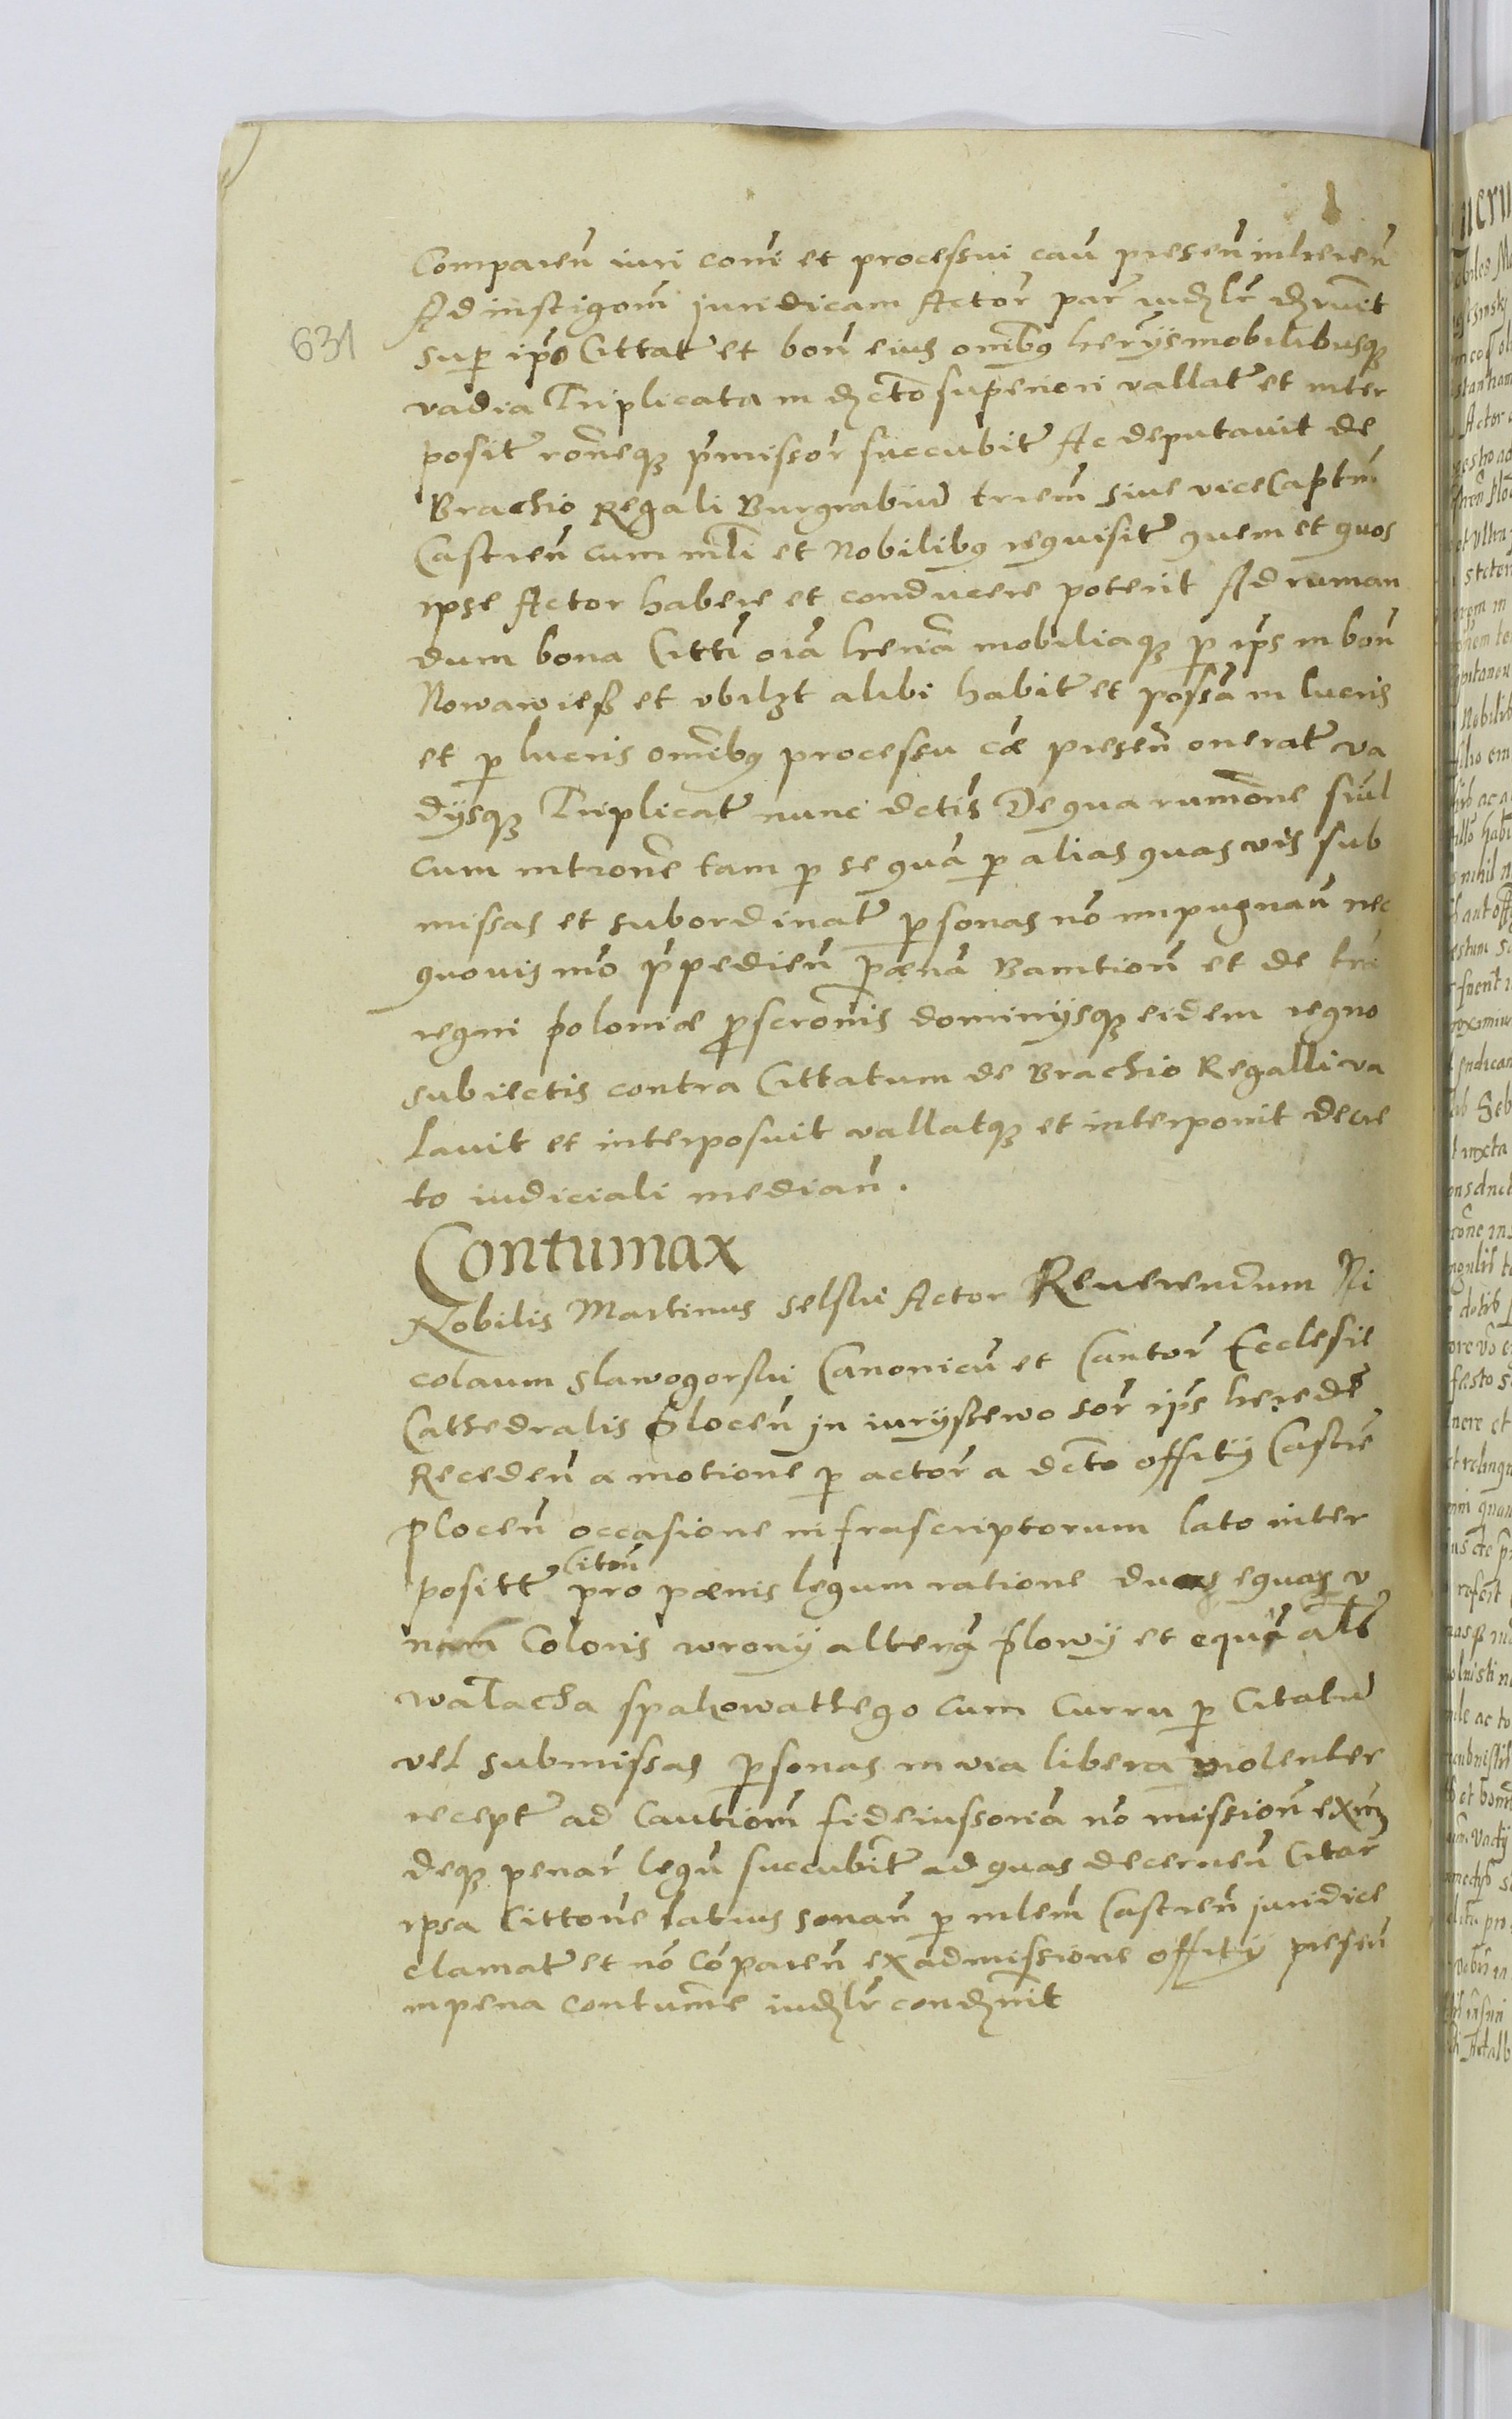 Comparen iuri coni et processui cau presen inheren
Ad instigom juridicam Actor par iudlr druit
631
sup ipso Cittat et bon eius omibus herijs mobilibusq
vadia Triplicata in dcto superiori vallat et inter
posit roneq pmissor succubit Ac deputavit de
Brachio Regali Burgrabiu triem siue viceCaptm
Castren cum mli et Nobilibus requisit quem et quos
ipse Actor habere et conducere poterit Ad ruman
dum bona Citti oia heria mobiliaq p ips in bon
Nowawiesß et vbilzt alibi habit et possa in lucris
et p lucris omibus processu cæ presen onerat va
dijsq Triplicat nunc dctis De qua rumone siul
cum introne tam p se qua p alias quas vis sub
missas et subordinat psonas no impugnan nec
quovis mo ppedien pæna Bamtion et de
regni poloniæ pscronis dominijsq eidem regno
subiectis contra Cittatum de Brachio Regalli va
lauit et interposuit vallatq et interponit decre
to iudiciali median.
Contumax
Nobilis Martinus selski Actor Reuerendum Ni
colaum slawogorski Canonicu et Cantor Ecclesie
Cathedralis Plocen jn iurijscewo sor ips herede
Receden a motione p actor a dcto offitij Castre
plocen occasione infrascriptorum lato inter
positt citon pro pænis legum ratione duas equas v
nam Coloris wronij altera plowij et equi als
walacha spakowattego cum Curru p Citatu
vel submissas psonas in via libera violenter
recept ad Cautiom fideiussoria no mission exm
deq penar legu succubit ad quas decernen Citat
ipsa Cittone latius sonan p mlem Castren juridice
clamat et no Coparen ex admissione offitij presen
in pena contume iudlr condnit